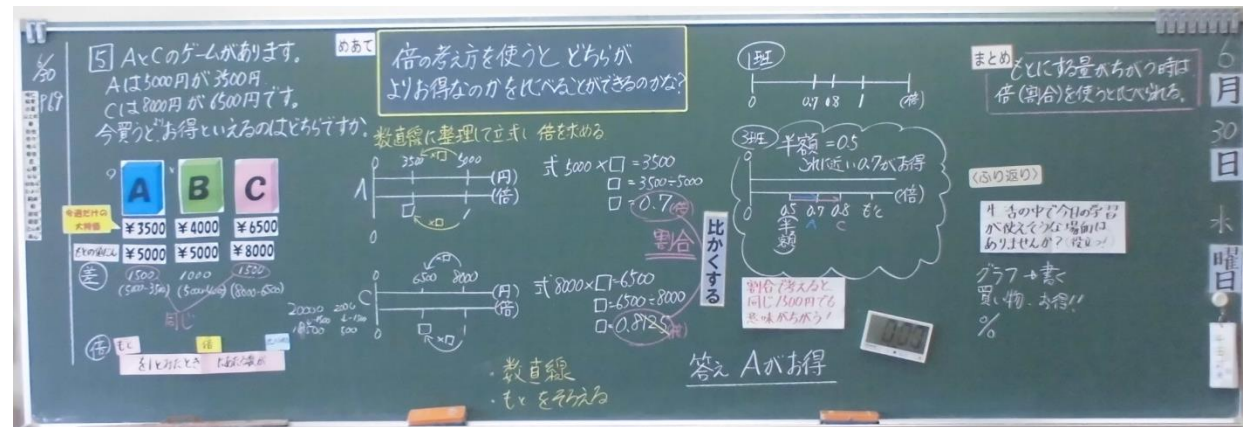 6/30
P69
5 AとCのゲームがあります。
Aは5000円が3500円
Cは8000円が6500円です。
今買うとお得といえるのはどちらですか、
A B C
今週だけの
大特価
¥3500 ¥4000 ¥6500
もとのねだん
¥5000 ¥5000 ¥8000
差
1500 1000 1500
(5000-3500) (5000-4000) (8000-6500)
同じ
倍
もと
倍
を1とみたとき
めあて
倍の考え方を使うと どちらが
よりお得なのかを比べることができるのかな?
数直線に整理して立式し 倍を求める
A
0 3500 5000 (円)
×□
0 □ (倍)
×□
式 5000×□=3500
□=3500÷5000
□=0.7(倍)
割合
C
0 6500 8000 (円)
×□
0 □ (倍)
×□
20000
18500
式 8000×□=6500
□=6500÷8000
□=0.8125(倍)
・数直線
・もとをそろえる
比かくする
1班
0 0.7 0.8 1 (倍)
3班
半額=0.5
これに近い0.7がお得
0 (倍)
0.5 0.7 0.8 もと
半額 A C
割合で考えると
同じ1500円でも
意味がちがう!
答え Aがお得
まとめ
もとにする量がちがう時は
倍(割合)を使うと比べられる。
〈ふり返り〉
生活の中で今日の学習
が使えそうな場面は
ありませんか?(役立つ)
グラフ→書く
買い物、お得!!
%
6
月
30
日
水
曜
日